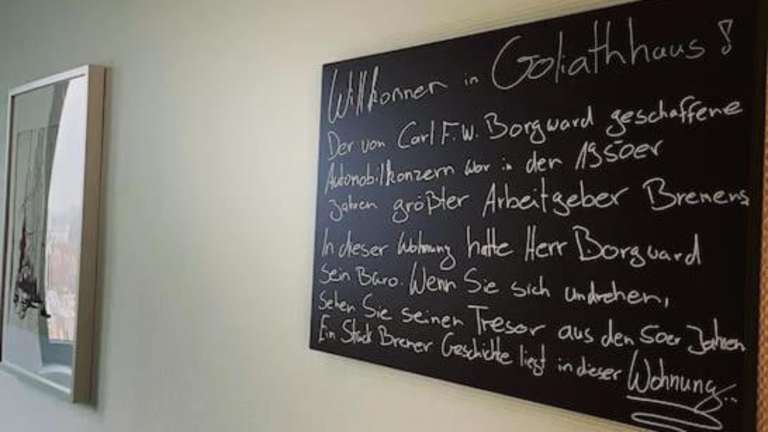 Willkommen im Goliathhaus!
Der von Carl F. W. Borgward geschaffene
Automobilkonzern war in den 1950er
Jahren größter Arbeitgeber Bremens
In dieser Wohnung hatte Herr Borgward
sein Büro. Wenn Sie sich umdrehen,
sehen Sie seinen Tresor aus den 50er Jahren
Ein Stück Bremer Geschichte liegt in dieser Wohnung...